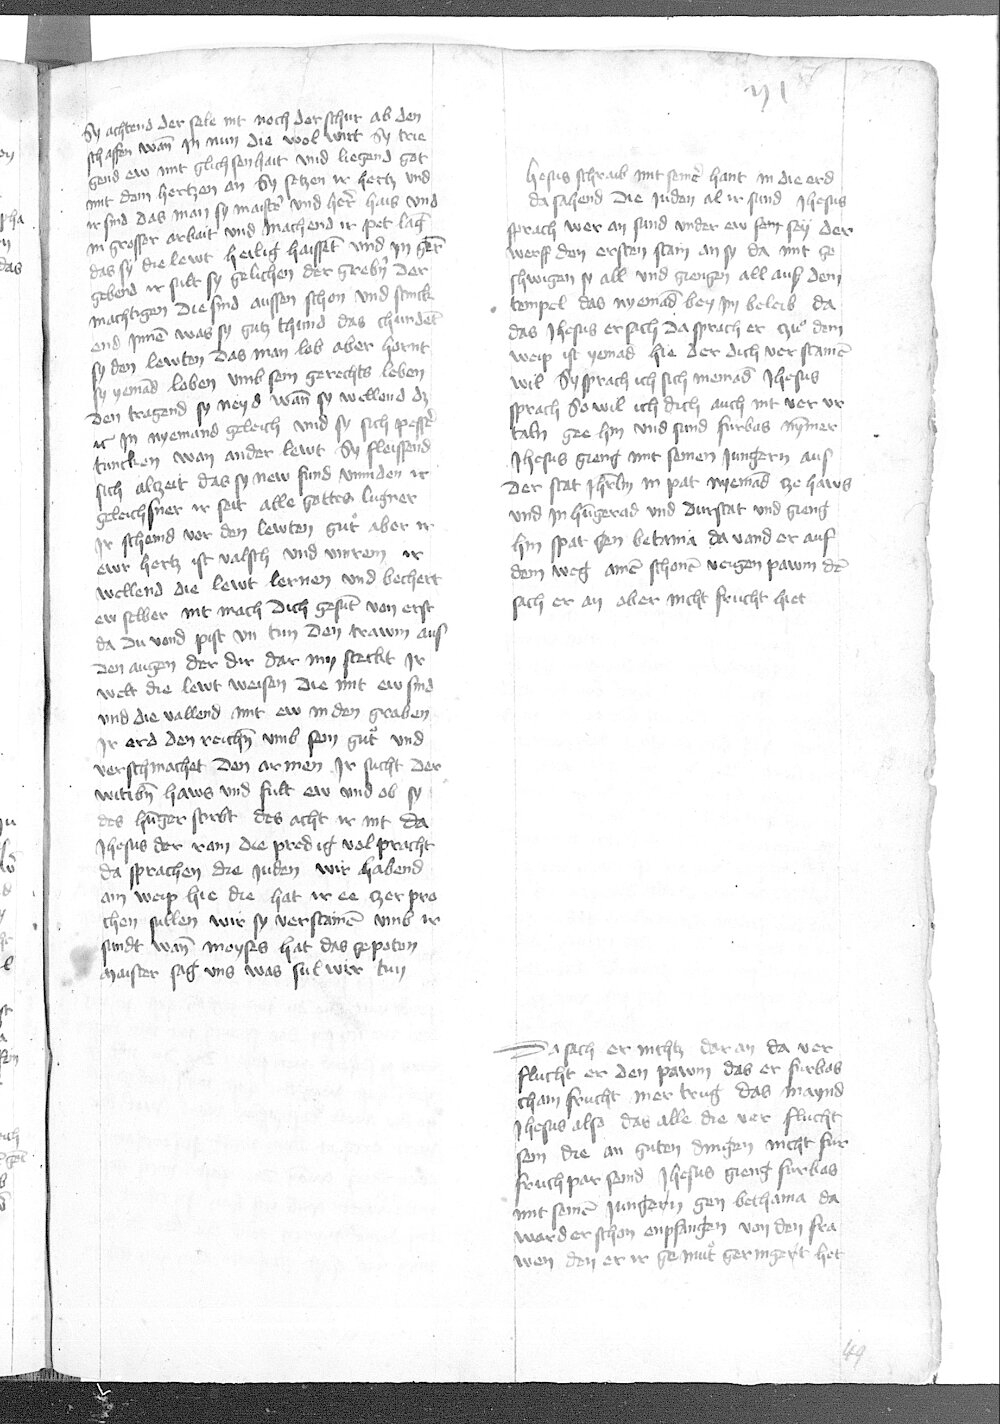 Sy achtend der sele nit noch der schut ab den
schaffen wan̄ jn nun die wol wirt Sy trie
gend ew mit glichsenhait vnd liegend got
mit dem hertzen an Sy setzen ir hertz vnd
ir sind das man sy maister vnd her̄ hais vnd
in grosser arbait vnd machend ir pet lang
das sy die lewt heilig haisset vnd jn
gebend ir sult sy gelichen der greber̄ der
machtigen Die sind aussen schon vnd stinck
end jnnē was sy gutz thund das chundet
sy den lewten Das man lob aber hornt
sy yemād loben vmb sein gerechts leben
Den tragend sy neyd wan̄ sy wellend dz
ir jn nyemand geleich vnd sy sich pesser̄
tuncken wan ander lewt Sy fleissend
sich alczeit das sy new fund vinnden ir
geleichsner ir seit alle gottes lugner
Jr scheind vor den lewten gut aber ir
ewr hertz ist valsch vnd vnrein ir
wellend die lewt lernen vnd bechert
ew selber nit mach Dich gesūt von erst
da Du vond pist vn tun Den trawm aus
Den augen der dir dar inn steckt Jr
welt die lewt weisen Die mit ew sind
vnd die vallend mit ew in den graben
Jr erd den reichn̄ vmb sein gut vnd
verschmachet Den armen Jr sucht Der
witibn̄ haws vnd fult ew vnd ob sy
des hūger stirbt des acht ir nit Da
Jhesus der rain die predig vol pracht
da sprachen die juden wir habend
ain weip hie die hat ir ee zerpro
chen sullen wir sy verstainē vmb ir
sundt wan̄ moyses hat das gepoten
Maister sag vns was sul wir tun
Jhesus schraib mit seiner̄ hant in die erd
da sahend Die juden al ir sund Jhesus
sprach wer an sund vnder ew sein sey Der
werff den ersten stain an sy da mit ge
schwigen sy all vnd giengen all aus dem
tempel das nyemād bey jm beleib da
das Jhesus ersach Da sprach er zu dem
weip ist yemād hie der dich verstainē
wil Sy sprach ich sich niemād Jhesus
sprach So wil ich dich auch nit ver vr
tailn gee hin vnd sund furbas nȳmer
Jhesus gieng mit seinen jungern aus
Der stat Jhrlm̄ in pat nyemād ze haws
vnd jn hūgerad vnd durstat vnd gieng
hin spat gen betania da vand er auf
dem weg ainē schonē veigen pawm dē
sach er an aber nicht frucht hiet
Da sach er nichtz dar an da ver
flucht er den pawm das er furbos
chain frucht mer trug das maynd
Jhesus also das alle die ver flucht
sein die an guten dingen nicht fur
fruchpar seind Jhesus gieng furbas
mit seinē jungern gen bethania da
ward er schon enpfangen von den fra
wen den er ir gemut geringert het
49